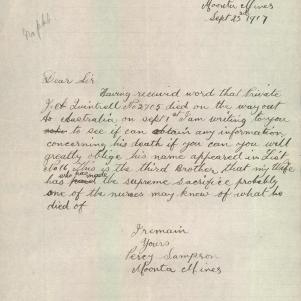 Moonta Mines
Sept 23rd 1917
Dear Sir
Having received word that Private
J. A Quintrell No 2705 died on the way out
to Australia on Sept 1st I am writing to you
to see if can obtain any information
concerning his death if you can you will
greatly oblige his name appeared in List
No 16 This is the third Brother that my Wife
has who has made the supreme sacrifice probably
one of the nurses may know of what he
died of
I remain
Yours
Percy Sampson
Moonta Mines